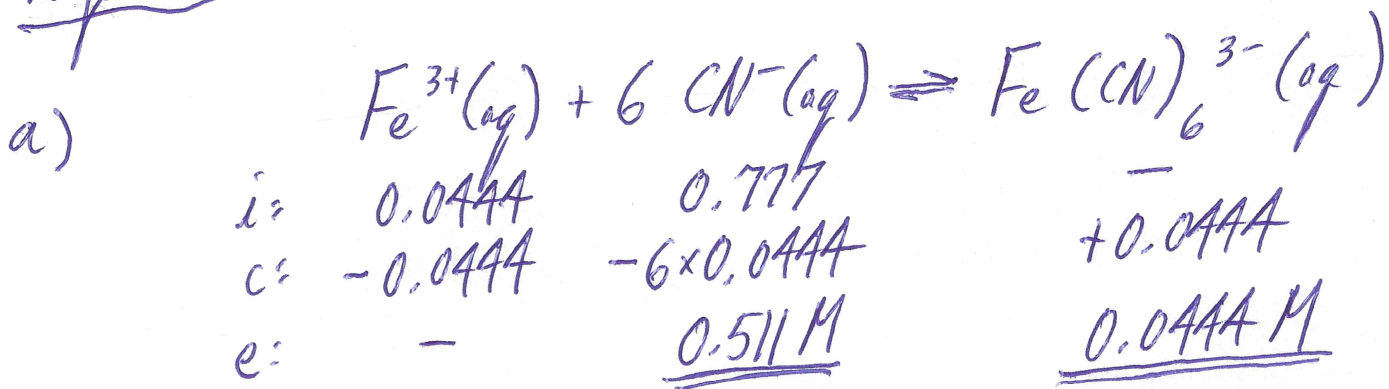 a) Fe³⁺(aq) + 6 CN⁻(aq) ⇌ Fe(CN)₆³⁻(aq)
i: 0.0444 0.777 –
c: -0.0444 -6×0.0444 +0.0444
e: – 0.511 M 0.0444 M